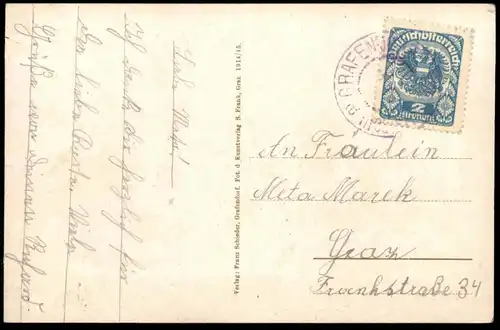 Liebe Meta!
Ich danke dir herzlich für
die liebe Karte. Viele
Grüße von deinem
Verlag: Franz Schinder, Grafendorf. Fot. & Kunstverlag S. Frank, Graz. 1914/15.
GRAFEN
Deutschösterreich
2
Kronen
An Fräulein
Meta Marek
Graz
Frankstraße 34